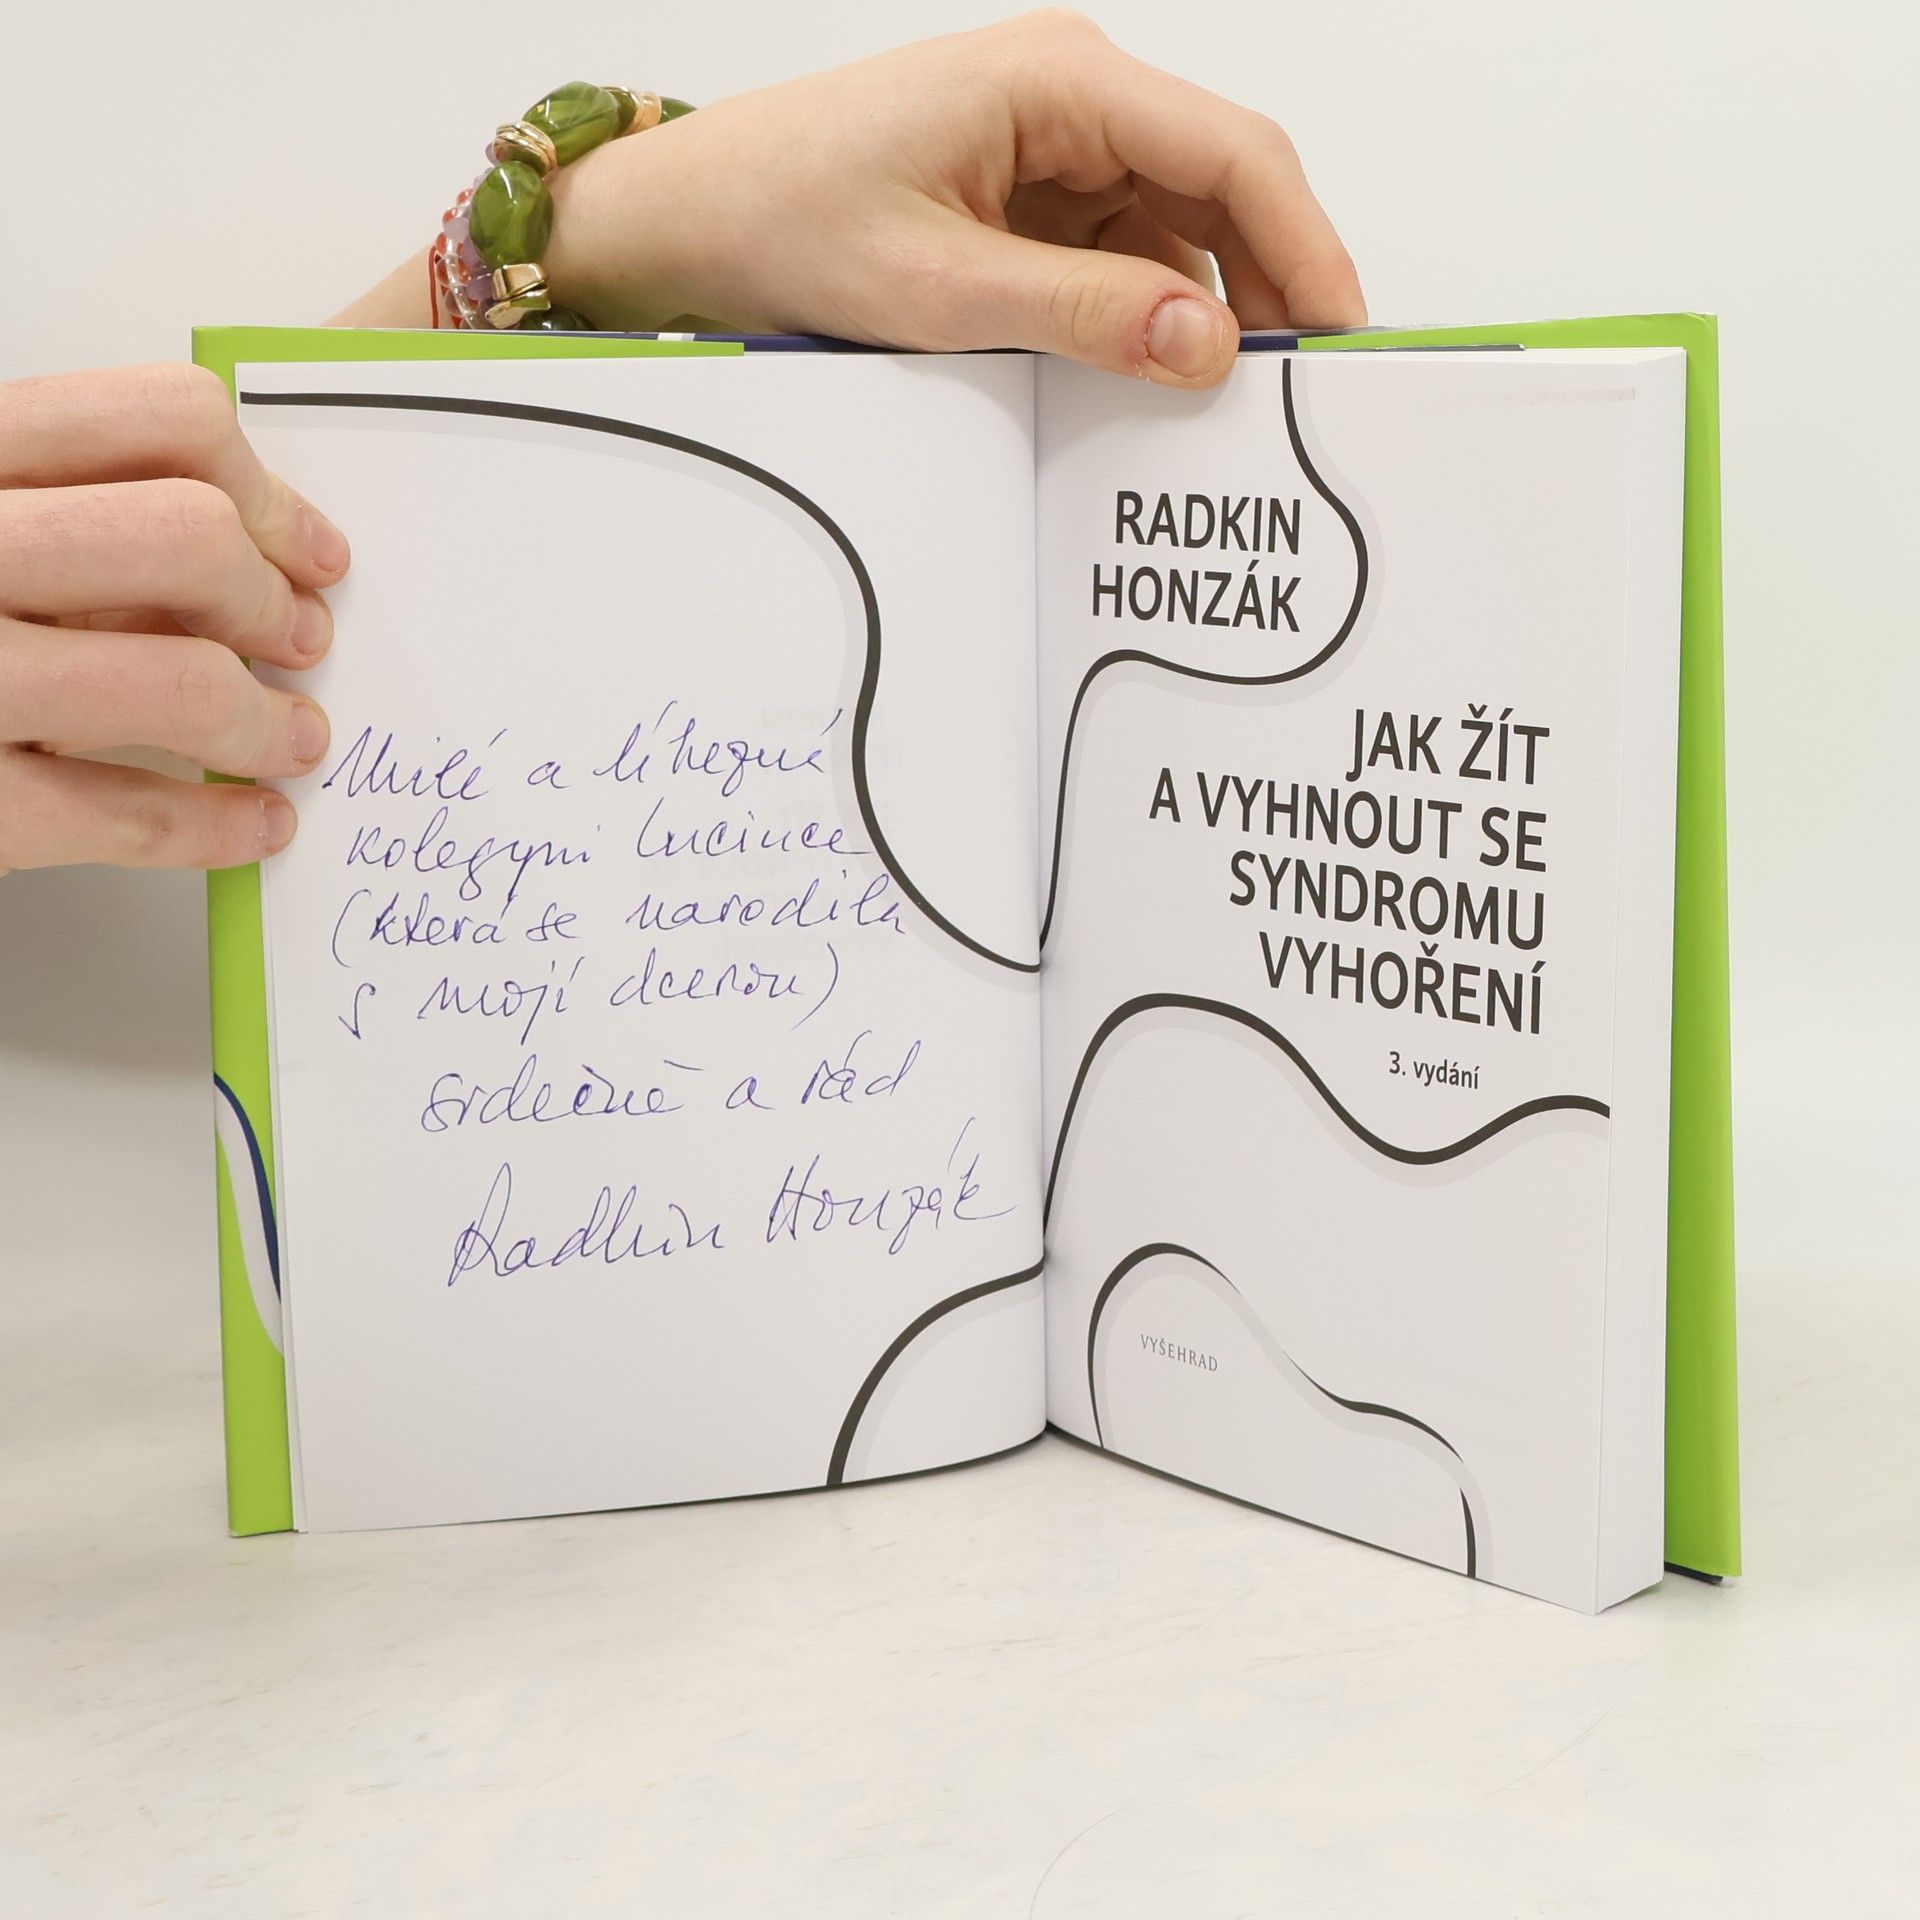 Milé a
kolegyni Lucince
(která se narodila
s mojí dcerou)
srdečně a rád
Radkin Honzák
RADKIN
HONZÁK
JAK ŽÍT
A VYHNOUT SE
SYNDROMU
VYHOŘENÍ
3. vydání
VYŠEHRAD